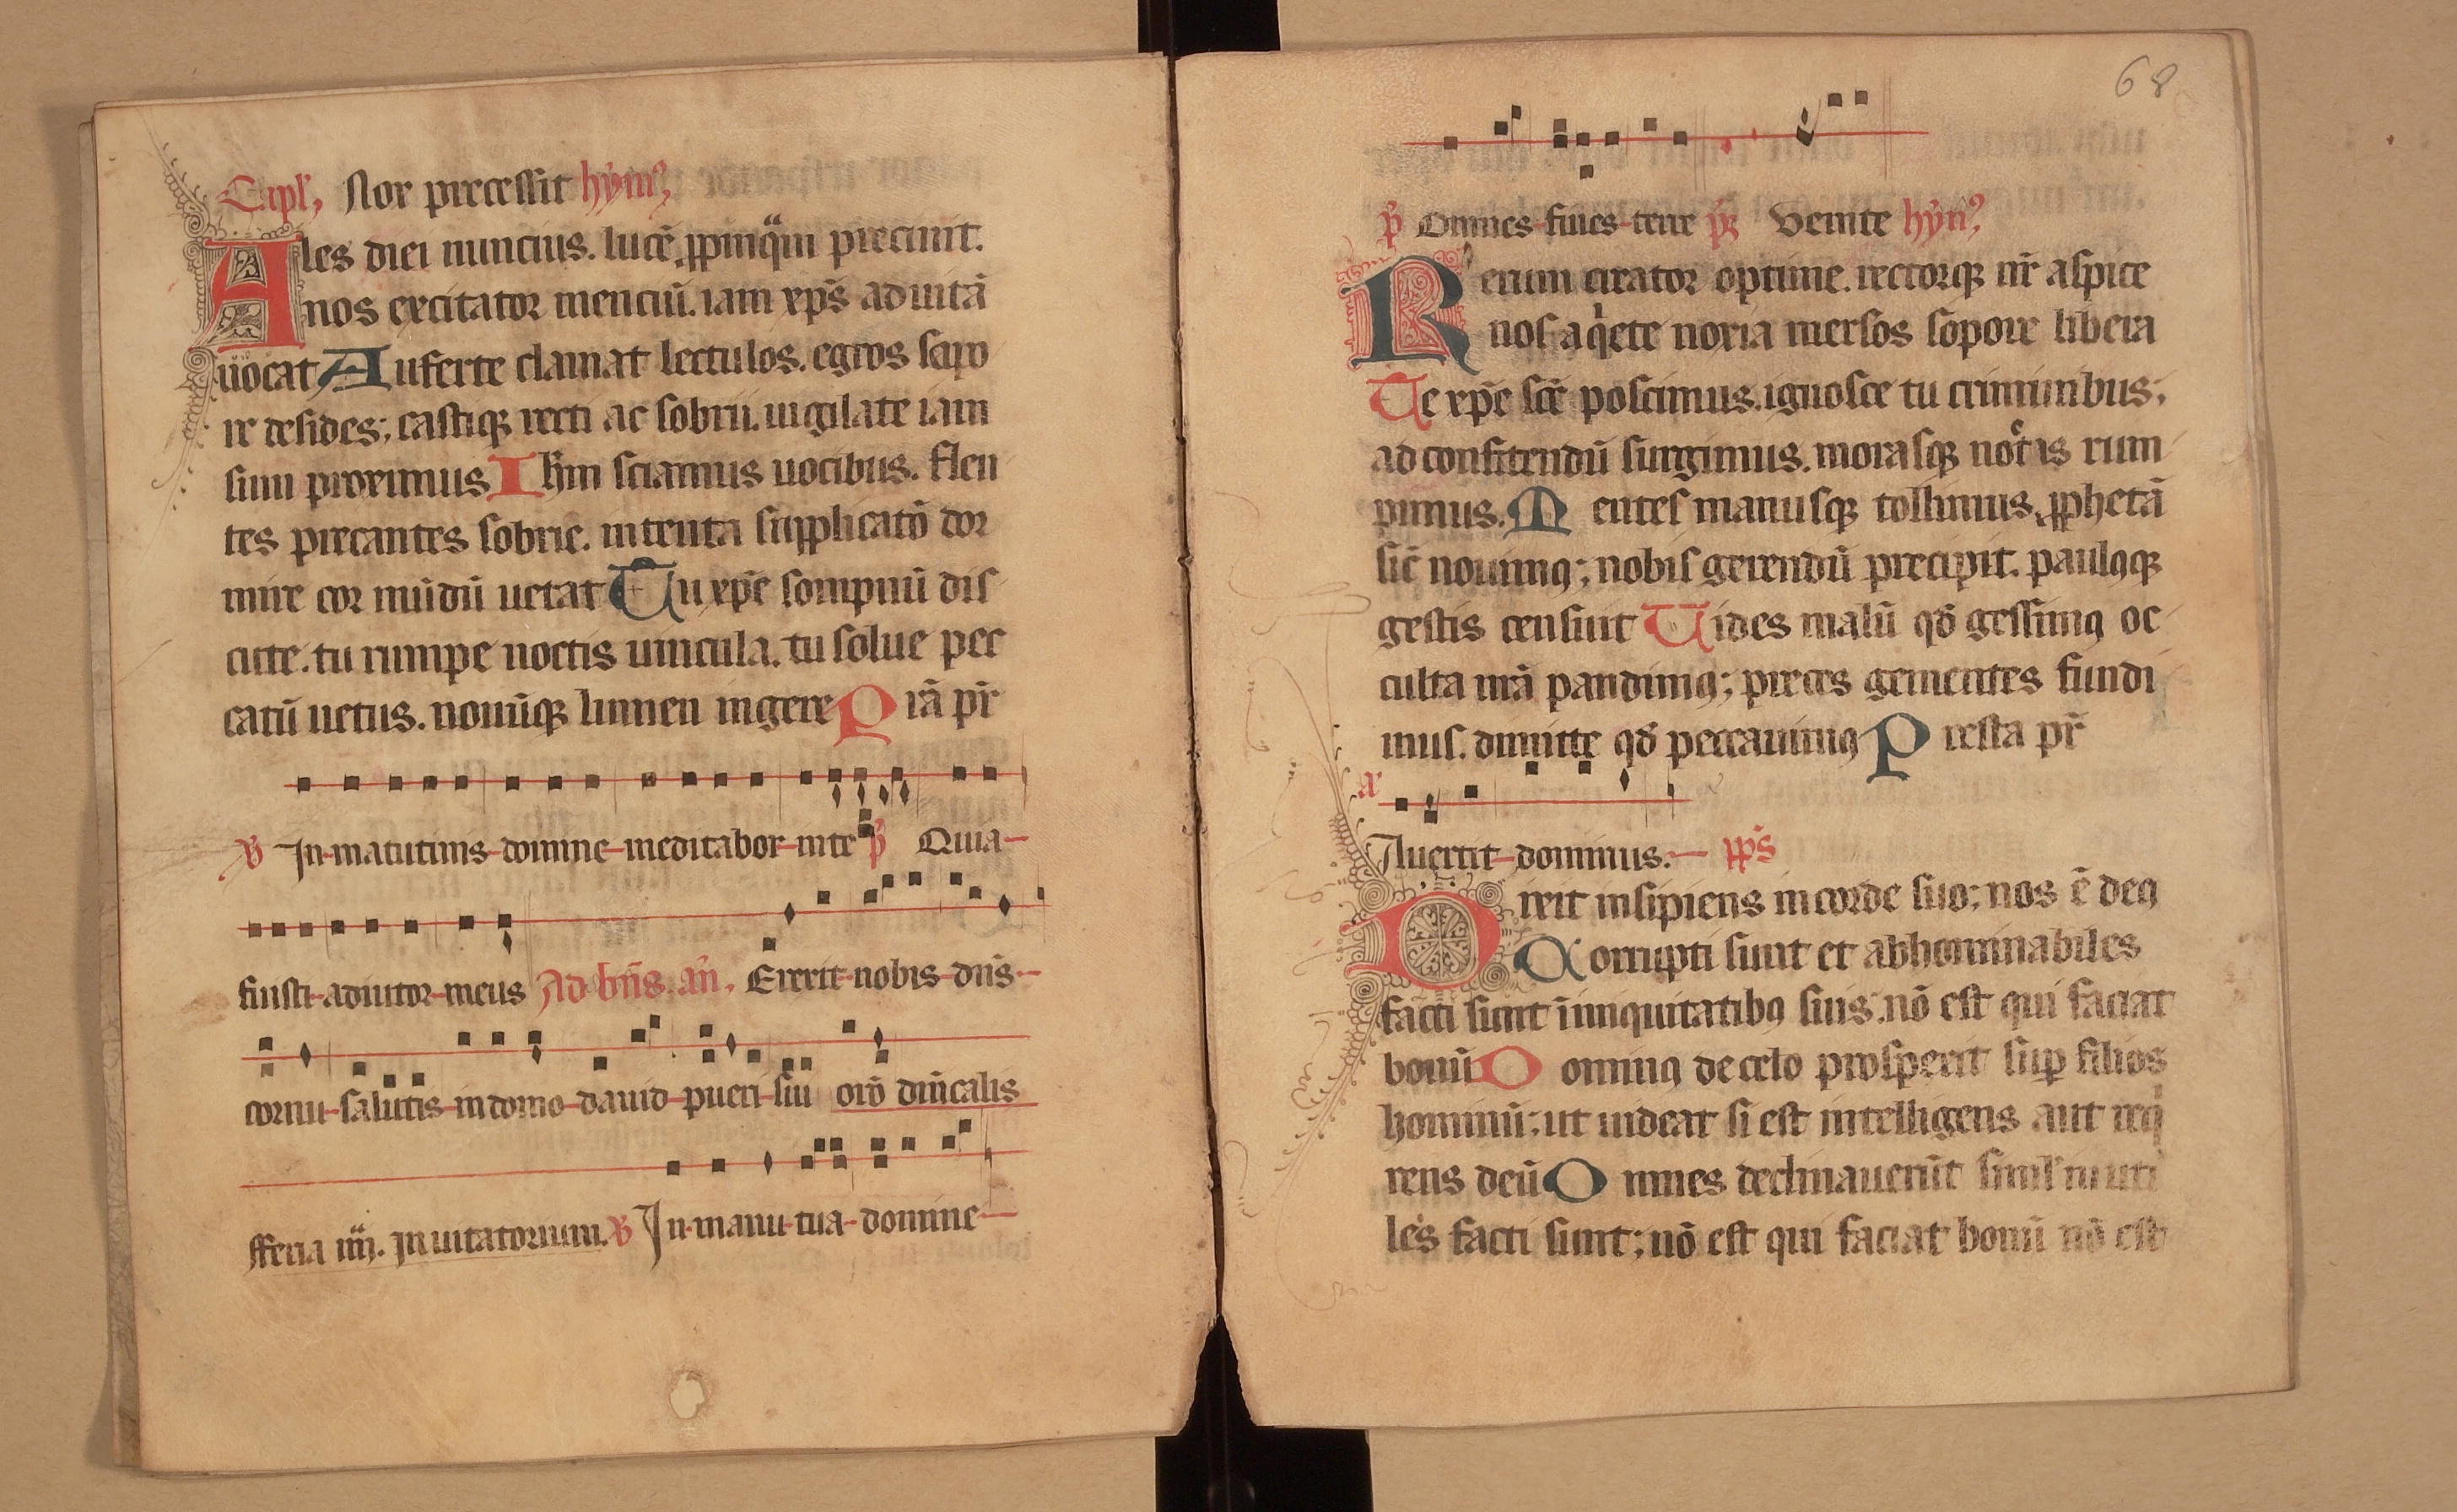 Capl', Nox precessit hymꝰ,
Ales diei nuncius. lucē ꝓpinqͣm precinit.
nos excitator menciū. iam xp̄s ad uitā
uocat Auferte clamat lectulos. egros sopo
re desides; castiqꝫ recti ac sobrii. uigilate iam
sum proximus Ihm̄ sciamus uocibus. flen
tes precantes sobrie. intenta supplicatō dor
mire cor mūdū uetat Tu xp̄e sompnū dis
cute. tu rumpe noctis uincula. tu solue pec
catū uetus. nouūqꝫ lumen ingere P iā pr̄
℣ In matutinis domine meditabor in te p̄ Quia
fuisti adiutor meus Ad bn̄s. an̄. Erexit nobis dn̄s
cornu salutis in domo dauid pueri sui orō dn̄icalis
fferia iiij. Inuitatorium. ℣ In manu tua domine
68
p̄ Omnes fines terre ps̄ Venite hym̄ꝰ
Rerum creator optime. rectorqꝫ nr̄ aspice
nos a qͥete noxia mersos sopore libera
Te xp̄e sc̄e poscimus. ignosce tu criminibus;
ad confitendū surgimus. morasqꝫ noctis rum
pimus. M entes manusqꝫ tollimus, ꝓphetā
sic̄ nouimꝰ; nobis gerendū precipit. paulꝰqꝫ
gestis censuit Uides malū qd̄ gessimꝰ oc
culta nr̄a pandimꝰ; preces gementes fundi
mus. dimitte qd̄ peccauimꝰ P resta pr̄
a
Auertit dominus. ps̄
Dixit insipiens in corde suo; nos ē deꝰ
Corrupti sunt et abhominabiles
facti sunt ī iniquitatibꝰ suis. nō est qui faciat
bonū D ominꝰ de celo prosperit suꝑ filios
hominū; ut uideat si est intelligens aut reqͥ
rens deū O mnes declinauerūt simul inuti
les facti sunt; nō est qui faciat bonū nō est